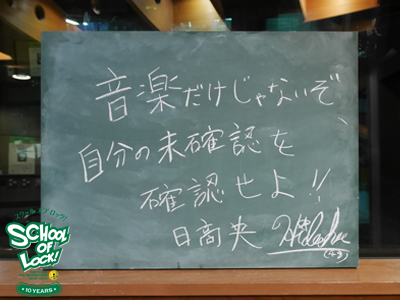 音楽だけじゃないぞ、
自分の未確認を
確認せよ!!
日高央
スクール オブ ロック!
SCHOOL
OF
LOCK!
10 YEARS